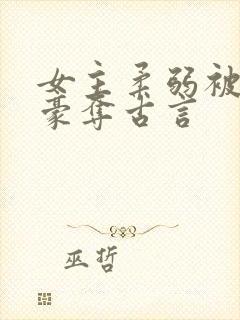 女主柔弱被
豪夺古言
巫哲